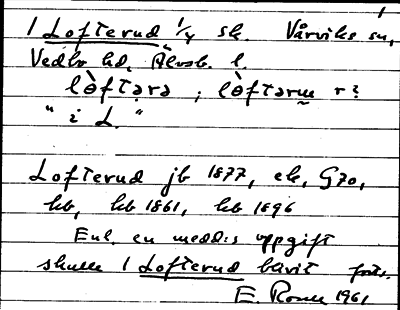 1
1 Lofterud 1/4 sk. Vårviks sn,
Vedbo hd, Älvsb. l.
lòftərə ; lòftərɯ r?
" i L. "
Lofterud jb 1877, ek, G70,
hb, kb 1861, kb 1896
Enl. en medd:s uppgift
skulle 1 Lofterud blivit forts.
E. Rosell 1961